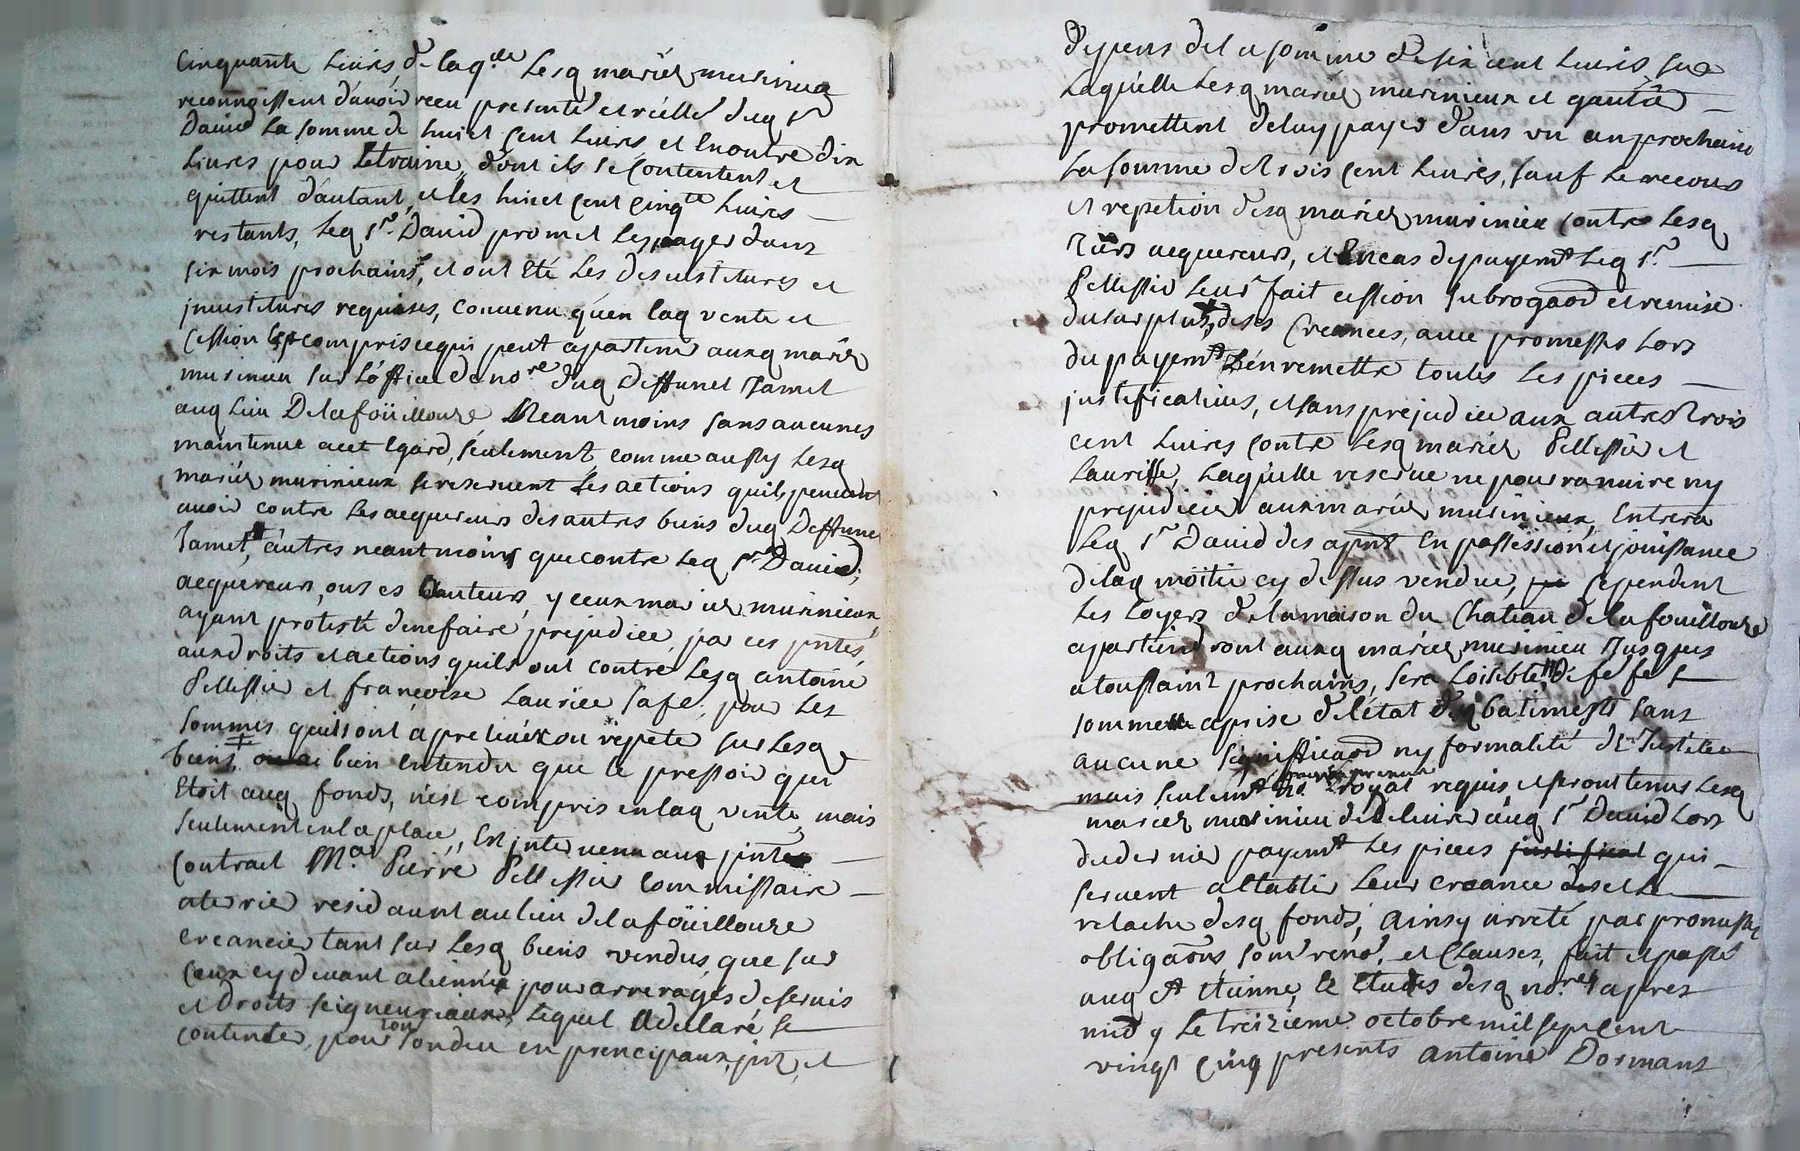 Cinquante livres, de laq.lle lesq mariés murinieux
reconnoissent d'avoir receu presentem.t et réellem.t duq s.r
David la somme de huict cent livres et en outre dix
livres pour l'etraine, dont ils se contentent et
quittent d'autant, et les huict cent cinq.te livres
restants, leq s.r David promet les payer dans
six mois prochains, et ont eté les desvestitures et
jnvestitures requises, convenu qu'en laq vente et
cession est compris ce qui peut apartenir auxq mariés
murinieu sur l'office de no.re duq deffunct Jamet
auq lieu de la foüillouze Neantmoins sans aucunes
maintenue a cet egard, seulement, comme aussy lesq
mariés murinieux se reservent les actions quils peuvent
avoir contre les acquereurs des autres biens duq deffunct
Jamet, autres neantmoins que contre leq s.r David,
acquereurs, ou ses autheurs, y ceux mariés murinieux
ayant protesté de ne faire prejudice, par ces p.ntes,
aux droits et actions quils ont contre lesq antoine
Pellissier et françoise Lauriee sa fe, pour les
sommes quils ont a pretendre ou repeté sur lesq
biens, bien entendu que le pressoir qui
Etoit auq fonds, n'est compris en laq vente, mais
seulement en la place, Est jntervenu aux p.ntes
Contrait M.e Pierre Pellissier commissaire
a terrier residaunt au lieu de la foüillouze
creancier tant sur lesq biens vendus que sur
ceux cy devant aliennés pour arrerages de servis
et droits seigneuriaux, lequel A declaré se
contenter, pour tout son deu en principaux, jnt, et
depens de la somme de six cent livres sur
laquelle lesq mariés murinieux et gautier
promettent de luy payer dans un an prochain
la somme de trois cent livres, sauf le recours
et repetion desq mariés murinieu contre lesq
tiers acquereurs, et En cas de payem.t leq s.r
Pellissier leur fait cession subrogaõn et remise
du surplus, de ses creances, avec promesses lors
du payem.t d'en remettre toutes les pieces
justificatives, et sans prejudice aux autres trois
cent livres contre lesq mariés Pellissier et
Laurisse, laquelle reserve ne pourra nuire ny
prejudicier aux mariés murinieux, Entrera
leq s.r David des a p.nt En possession et jouissance
de laq moitié cy dessus vendue, cependent
les loyers de la maison du Chateau de la fouillouze
apartiendront auxq mariés murinieu Jusques
a toussaint prochains, sera loisible de fe fe
sommaire aprise de l'état desq batiments sans
aucune significaõn ny formalité de Justice
mais seulem.t no.re royal requis et seront tenus lesq
mariés murinieu de delivrer auq s.r David lors
du dernier payem.t les pieces justificat qui
servent a etablir leur creance
relache desq fonds, ainsy arreté par promesses
obligaõns soum renõ. et clauses, fait et passé
auq S.t Etienne, le Etudes desq no.res apres
midy le treizieme octobre mil sept cent
vingt cinq presents antoine Dormant